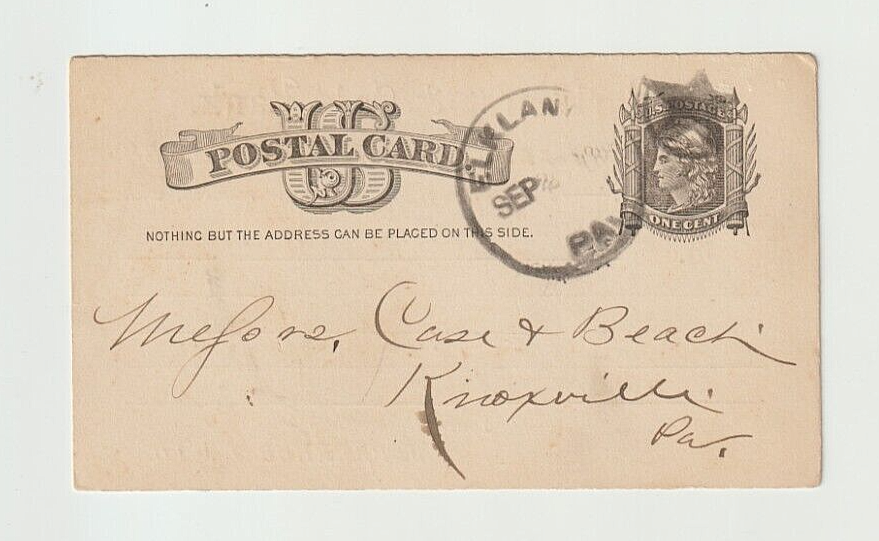 US
POSTAL CARD.
NOTHING BUT THE ADDRESS CAN BE PLACED ON THIS SIDE.
ELKLAND
SEP
PA
U.S. POSTAGE
ONE CENT
Messrs, Case & Beach
Knoxville
Pa.